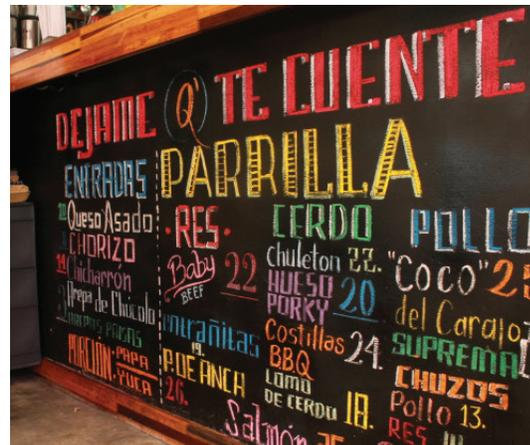 DEJAME Q' TE CUENTE
ENTRADAS
Queso Asado
CHORIZO
Chicharrón
Arepa de Chócolo
PORCION: PAPA
YUCA
PARRILLA
RES
Baby BEEF 22
entrañitas
19.
P. DE ANCA
26.
CERDO
chuleton 22.
HUESO PORKY 20
Costillas BBQ 24.
LOMO DE CERDO 18.
Salmón
POLLO
"COCO"
del Carajo
SUPREMA
CHUZOS
Pollo 13.
RES